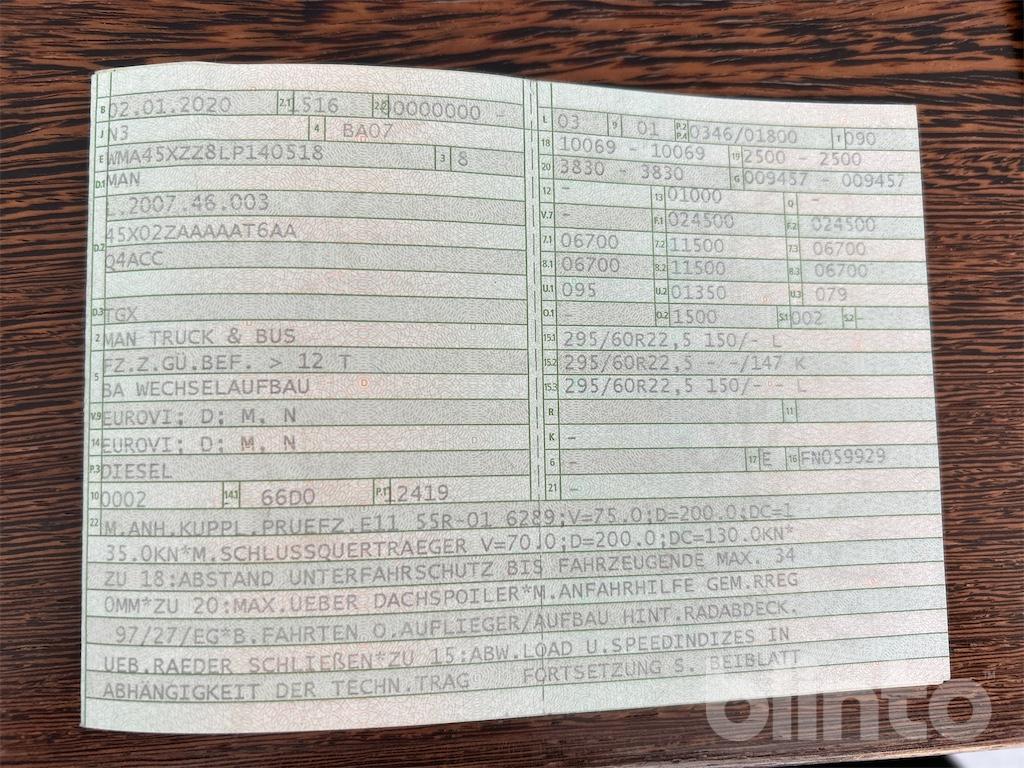 B 02.01.2020 2.1 1516 2.2 0000000 -
J N3 4 BA07
E WMA45XZZ8LP140518 3 8
D.1 MAN
L.2007.46.003
D.2 45X02ZAAAAAT6AA
Q4ACC
D.3 TGX
2 MAN TRUCK & BUS
5 FZ.Z.GÜ.BEF. > 12 T
BA WECHSELAUFBAU
V.9 EUROVI; D; M, N
14 EUROVI; D; M, N
P.3 DIESEL
10 0002 14.1 66D0 P.1 12419
L 03 9 01 P.2 P.4 0346/01800 T 090
18 10069 - 10069 19 2500 - 2500
20 3830 - 3830 G 009457 - 009457
12 - 13 01000 Q -
V.7 - F.1 024500 F.2 024500
7.1 06700 7.2 11500 7.3 06700
8.1 06700 8.2 11500 8.3 06700
U.1 095 U.2 01350 U.3 079
O.1 - O.2 1500 S.1 002 S.2 -
15.1 295/60R22,5 150/- L
15.2 295/60R22,5 - -/147 K
15.3 295/60R22,5 150/- - L
R 11
K -
6 - 17 E 16 FN059929
21 -
22 M.ANH.KUPPL.PRUEFZ.E11 55R-01 6289;V=75.0;D=200.0;DC=1
35.0KN*M.SCHLUSSQUERTRAEGER V=70.0;D=200.0;DC=130.0KN*
ZU 18:ABSTAND UNTERFAHRSCHUTZ BIS FAHRZEUGENDE MAX. 34
0MM*ZU 20:MAX.UEBER DACHSPOILER*M.ANFAHRHILFE GEM.RREG
97/27/EG*B.FAHRTEN O.AUFLIEGER/AUFBAU HINT.RADABDECK.
UEB.RAEDER SCHLIEßEN*ZU 15:ABW.LOAD U.SPEEDINDIZES IN
ABHÄNGIGKEIT DER TECHN.TRAG FORTSETZUNG S. BEIBLATT
blinto